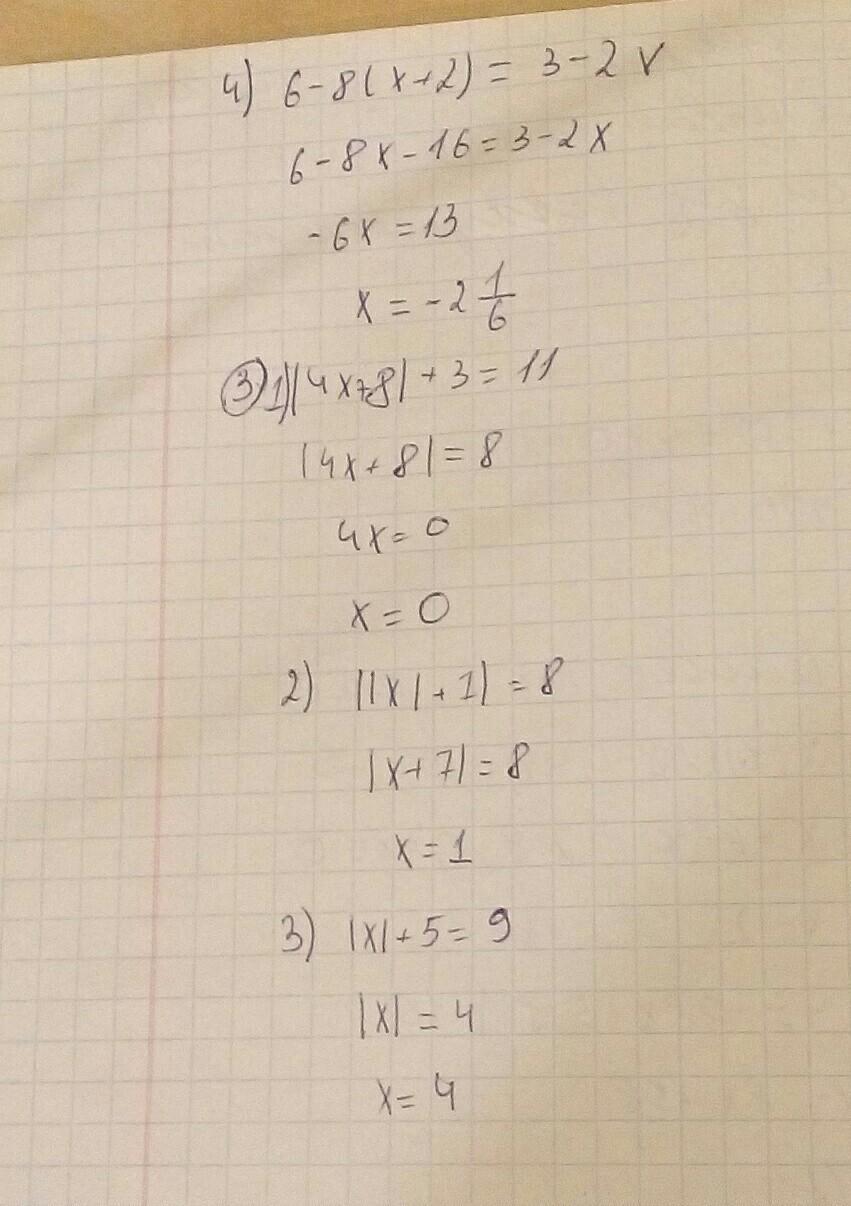 4) 6-8(x+2) = 3-2x
6-8x-16=3-2x
-6x=13
x=-2 1/6
③ 1) |4x+8|+3=11
|4x+8|=8
4x=0
x=0
2) ||x|+1|=8
|x+7|=8
x=1
3) |x|+5=9
|x|=4
x=4